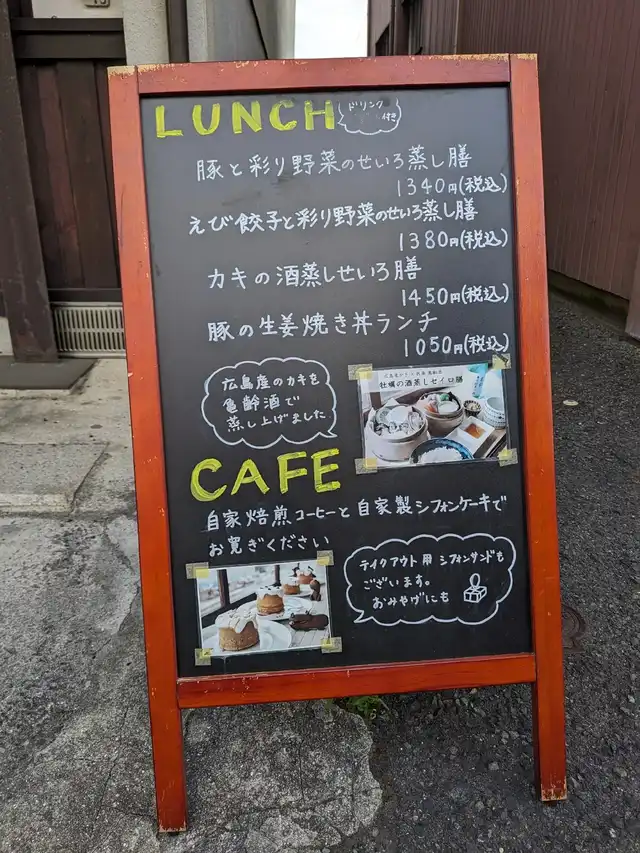 LUNCH
ドリンク
付き
豚と彩り野菜のせいろ蒸し膳
1340円(税込)
えび餃子と彩り野菜のせいろ蒸し膳
1380円(税込)
カキの酒蒸しせいろ膳
1450円(税込)
豚の生姜焼き丼ランチ
1050円(税込)
広島産のカキを
亀齢酒で
蒸し上げました
牡蠣の酒蒸しセイロ膳
CAFE
自家焙煎コーヒーと自家製シフォンケーキで
お寛ぎください
テイクアウト用シフォンサンドも
ございます。
おみやげにも